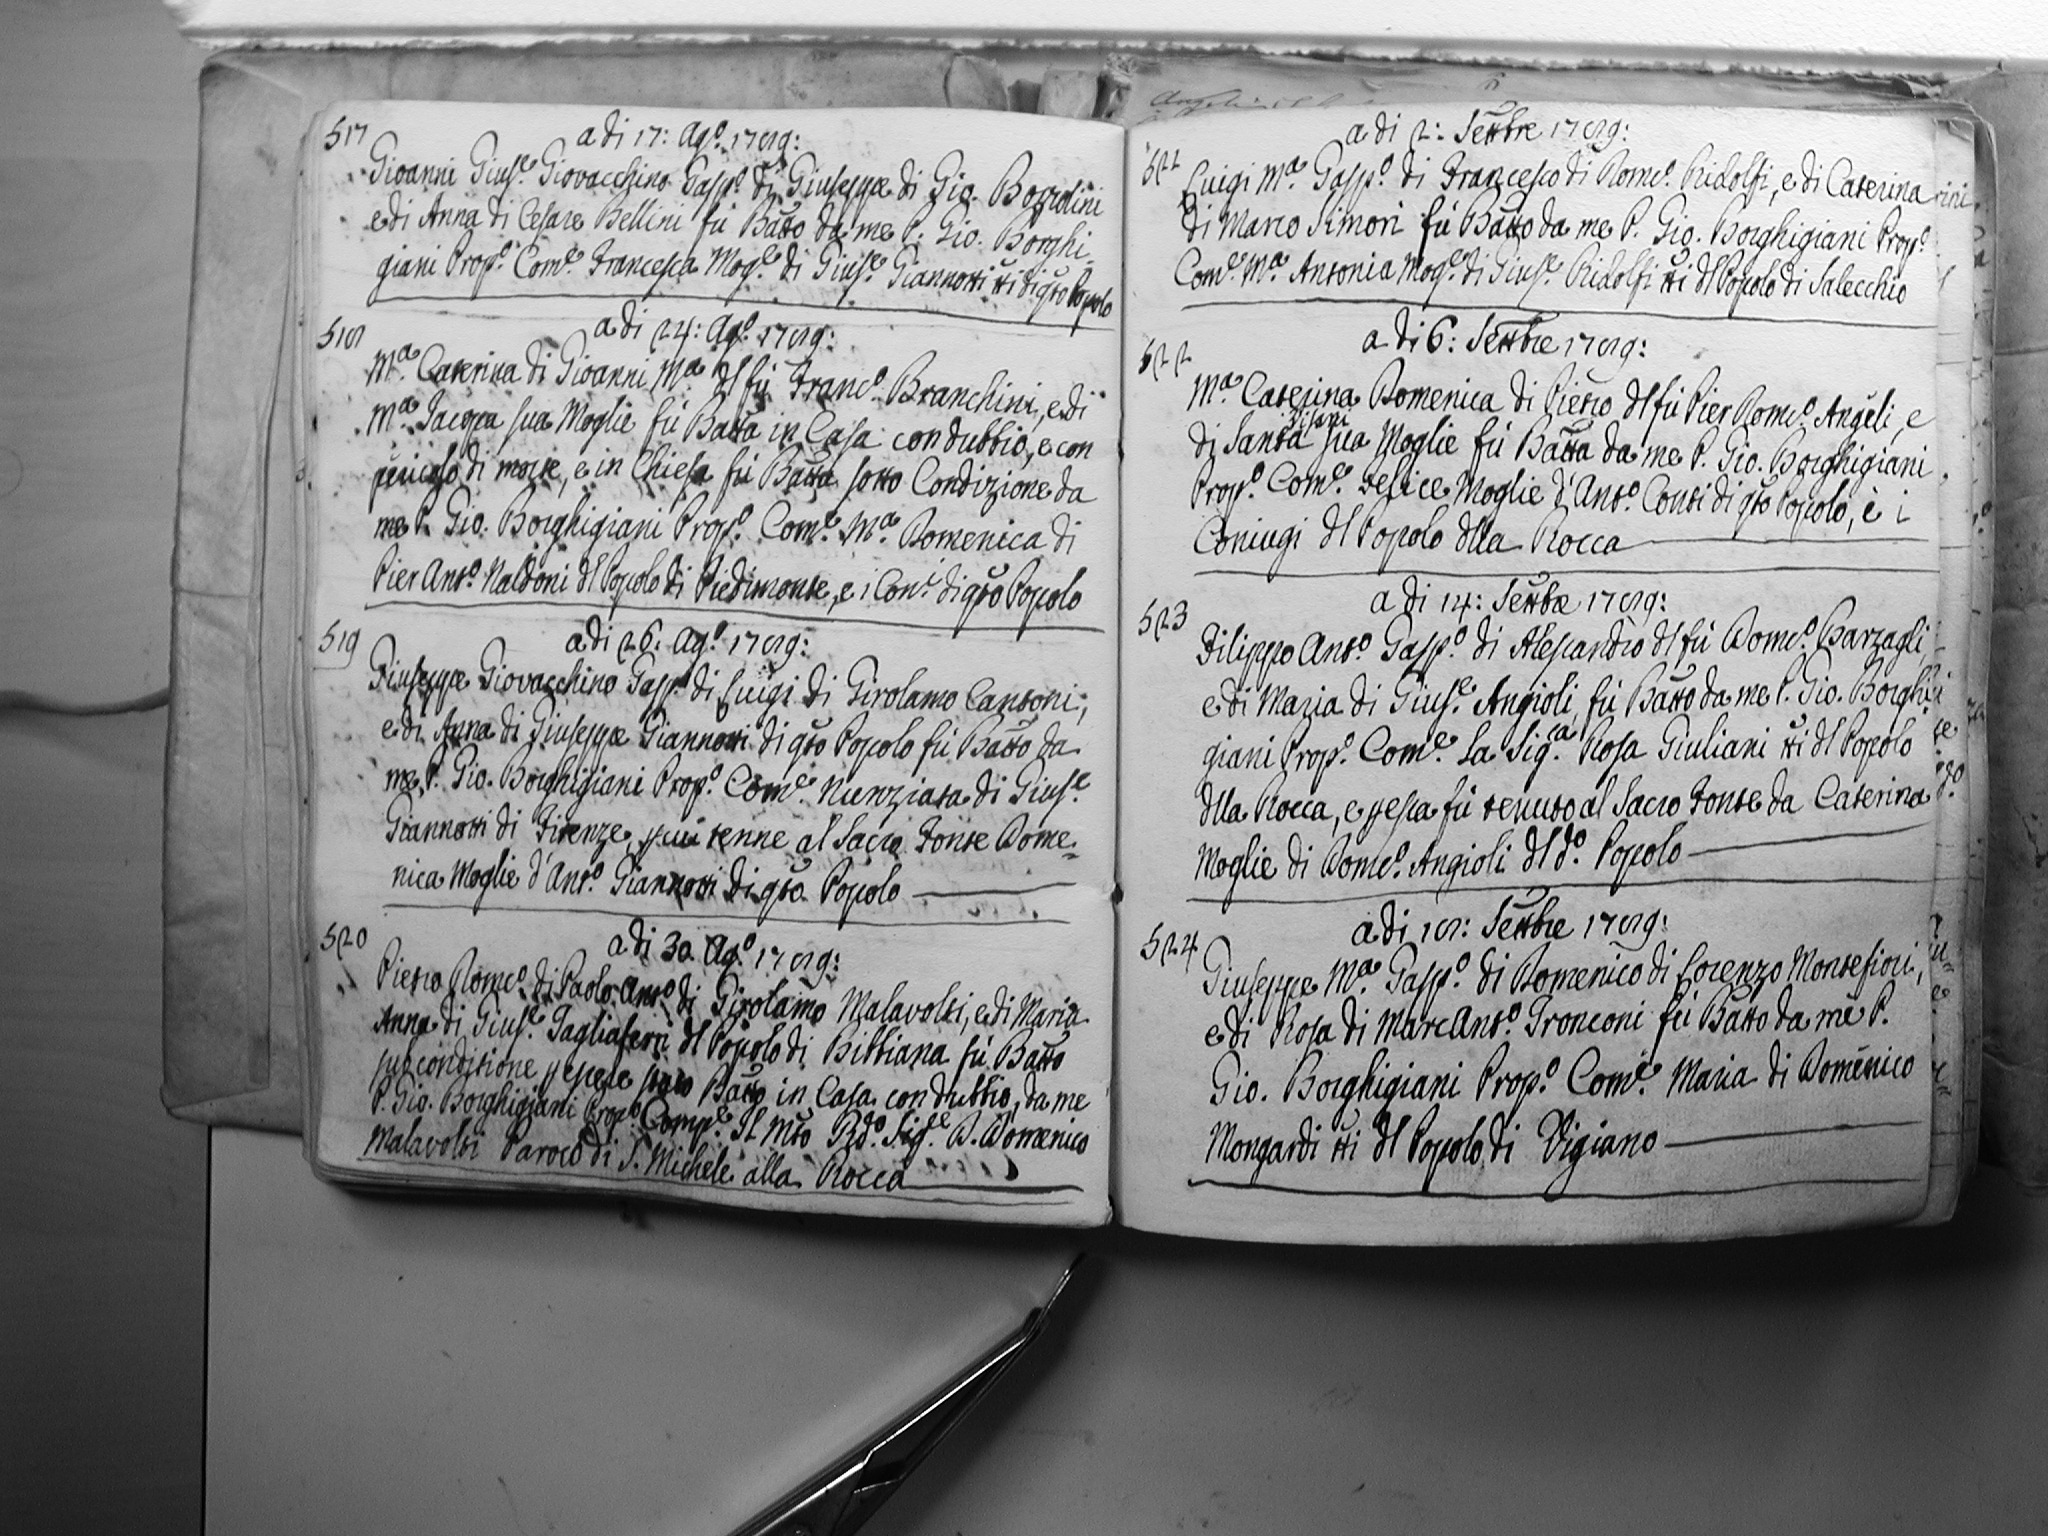 517
a di 17: Ag.º 1789:
Giovanni Gius.e Giovacchino Gasp.º di Giuseppe di Gio. Bortolini
e di Anna di Cesare Bellini fù Batto da me P. Gio. Borghi-
giani Prop.º Com.e Francesca Mog.e di Gius.e Giannotti tti di qto Popolo
518
a di 24: Ag.º 1789:
M.a Caterina di Giovanni M.a dl fù Franc.º Branchini, e di
M.a Jacopa sua Moglie fù Batta in Casa con dubbio, e con
pericolo di morte, e in Chiesa fù Batta sotto Condizione da
me P. Gio. Borghigiani Prop.º Com.e M.a Domenica di
Pier Ant.º Naldoni dl Popolo di Piedimonte, e i Con.i di qto Popolo
519
a di 26: Ag.º 1789:
Giuseppe Giovacchino Gasp.º di Luigi di Girolamo Cantoni,
e di Anna di Giuseppe Giannotti di qto Popolo fù Batto da
me P. Gio. Borghigiani Prop.º Com.e Nunziata di Gius.e
Giannotti di Firenze, p cui tenne al Sacro Fonte Dome-
nica Moglie d'Ant.º Giannotti di qto Popolo
520
a di 30 Ag.º 1789:
Pietro Dom.co di Paolo Ant.º di Girolamo Malavolti, e di Maria
Anna di Gius.e Tagliaferri dl Popolo di Bibbiana fù Batto
sub conditione p essere stato Batto in Casa con dubbio, da me
P. Gio. Borghigiani Prop.º Comp.e Il Mto Rdo. Sig.e D. Domenico
Malavolti Paroco di S. Michele alla Rocca
521
a di 2: Settbre 1789:
Luigi M.a Gasp.º di Francesco di Dom.co Ridolfi, e di Caterina
di Marco Simori fù Batto da me P. Gio. Borghigiani Prop.º
Com.e M.a Antonia Mog.e di Gius.e Ridolfi tti dl Popolo di Salecchio
522
a di 6: Settbre 1789:
M.a Caterina Domenica di Pietro dl fù Pier Dom.co Angeli, e
di Santa sua Moglie fù Batta da me P. Gio. Borghigiani
Prop.º Com.e Felice Moglie d'Ant.º Conti di qto Popolo, e i
Coniugi dl Popolo dlla Rocca
523
a di 14: Settbre 1789:
Filippo Ant.º Gasp.º di Alessandro dl fù Dom.co Barzagli,
e di Maria di Gius.e Angioli, fù Batto da me P. Gio. Borghi
giani Prop.º Com.e La Sig.ra Rosa Giuliani tti dl Popolo
dlla Rocca, e p essa fù tenuto al Sacro Fonte da Caterina
Moglie di Dom.co Angioli dl do. Popolo
524
a di 18: Settbre 1789:
Giuseppe M.a Gasp.º di Domenico di Lorenzo Montefiori,
e di Rosa di Marc Ant.º Tronconi fù Batto da me P.
Gio. Borghigiani Prop.º Com.e Maria di Domenico
Mongardi tti dl Popolo di Vigiano